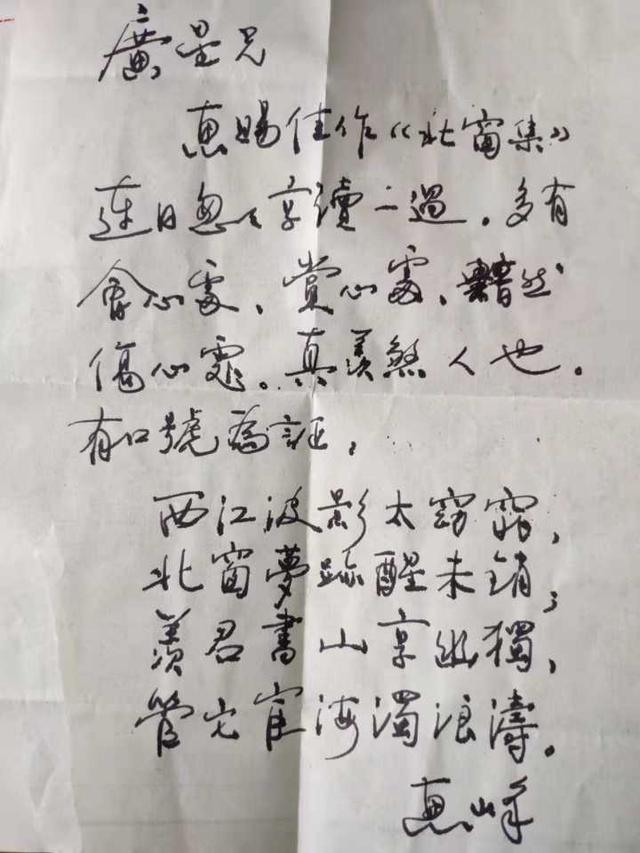 廣星兄
惠賜佳作《北窗集》
連日匆匆享讀一過，多有
會心處、賞心處、黯然
傷心處。真羨煞人也。
有口號爲証：
西江波影太窈窕，
北窗夢跡醒未銷；
羨君書山享幽獨，
管它宦海濁浪濤。
惠峰